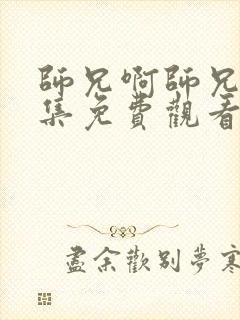 師兄啊師兄
集免費觀看
盡余歡別夢寒